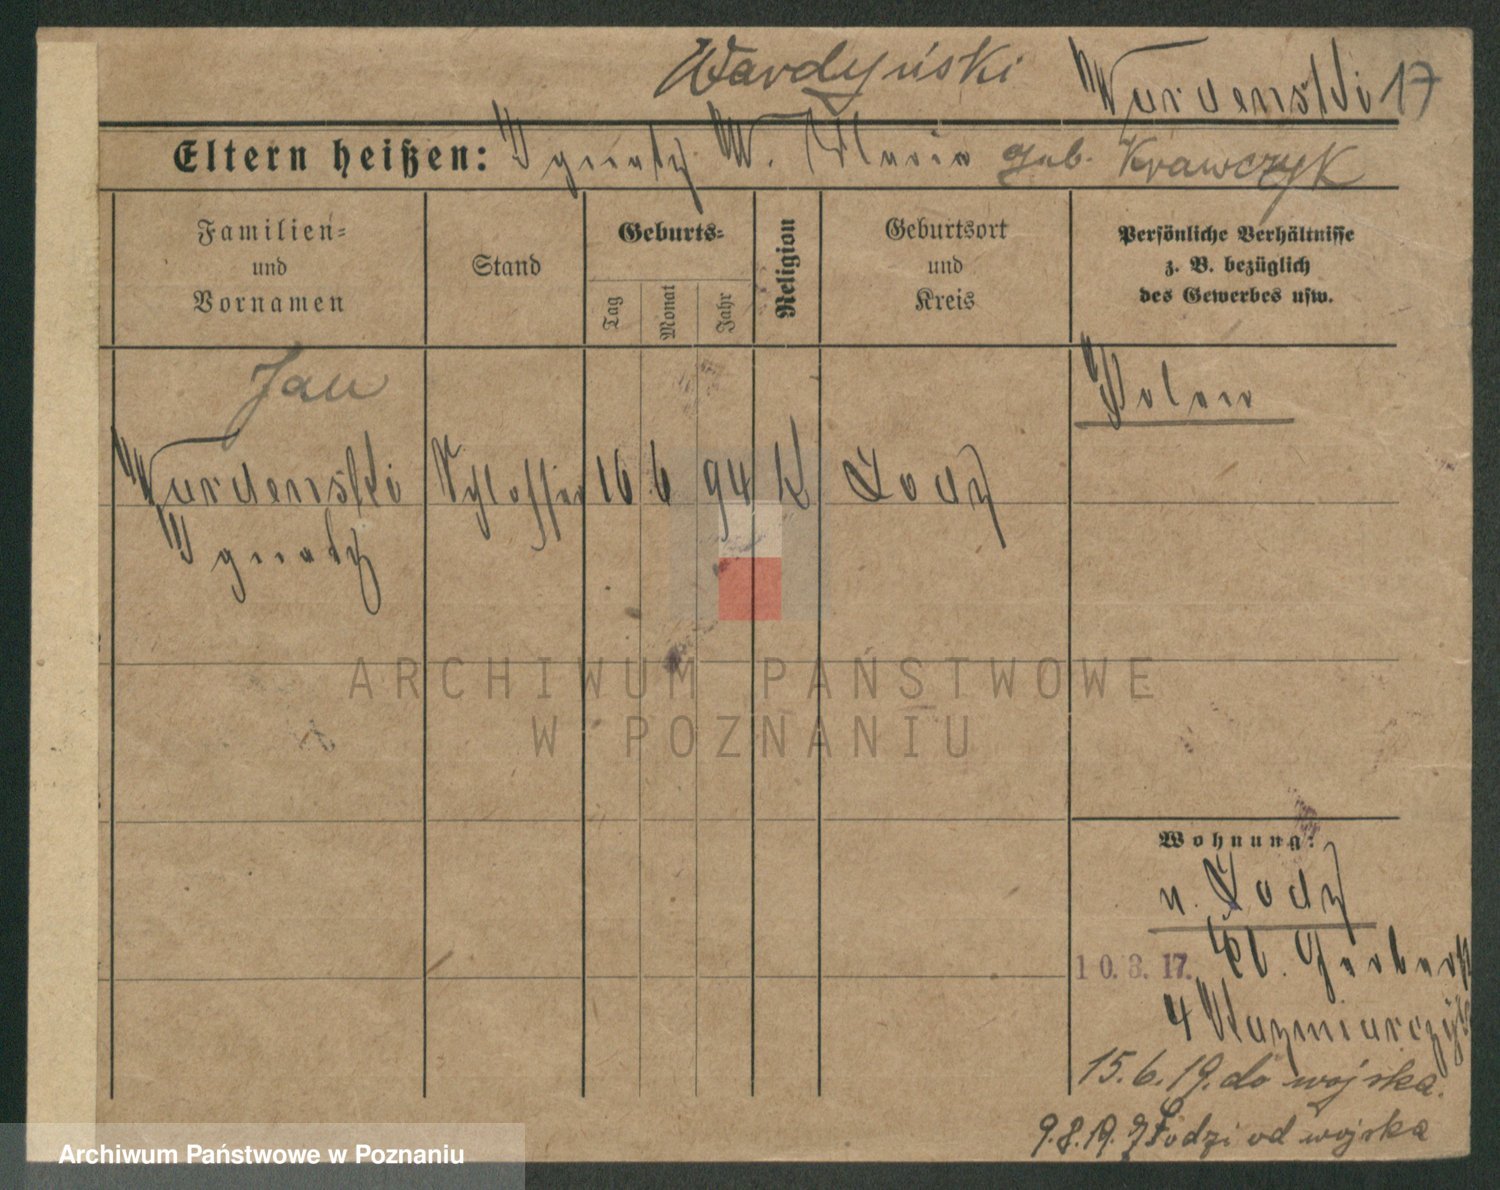 Wardyński Wardenski 17
Eltern heißen: Ignatz W. Maria geb. Krawczyk
Familien= und Vornamen
Stand
Geburts=
Tag Monat Jahr
Religion
Geburtsort und Kreis
Persönliche Verhältnisse z. B. bezüglich des Gewerbes usw.
Jan
Polen
Wardenski Schlosser 16 6 94 K Lodz
Ignatz
ARCHIWUM PAŃSTWOWE
W POZNANIU
Wohnung:
n. Lodz
10.3.17. Gerberst
4 Kazmiarczyk
15.6.19. do wojska.
9.8.19. z Łodzi od wojska
Archiwum Państwowe w Poznaniu